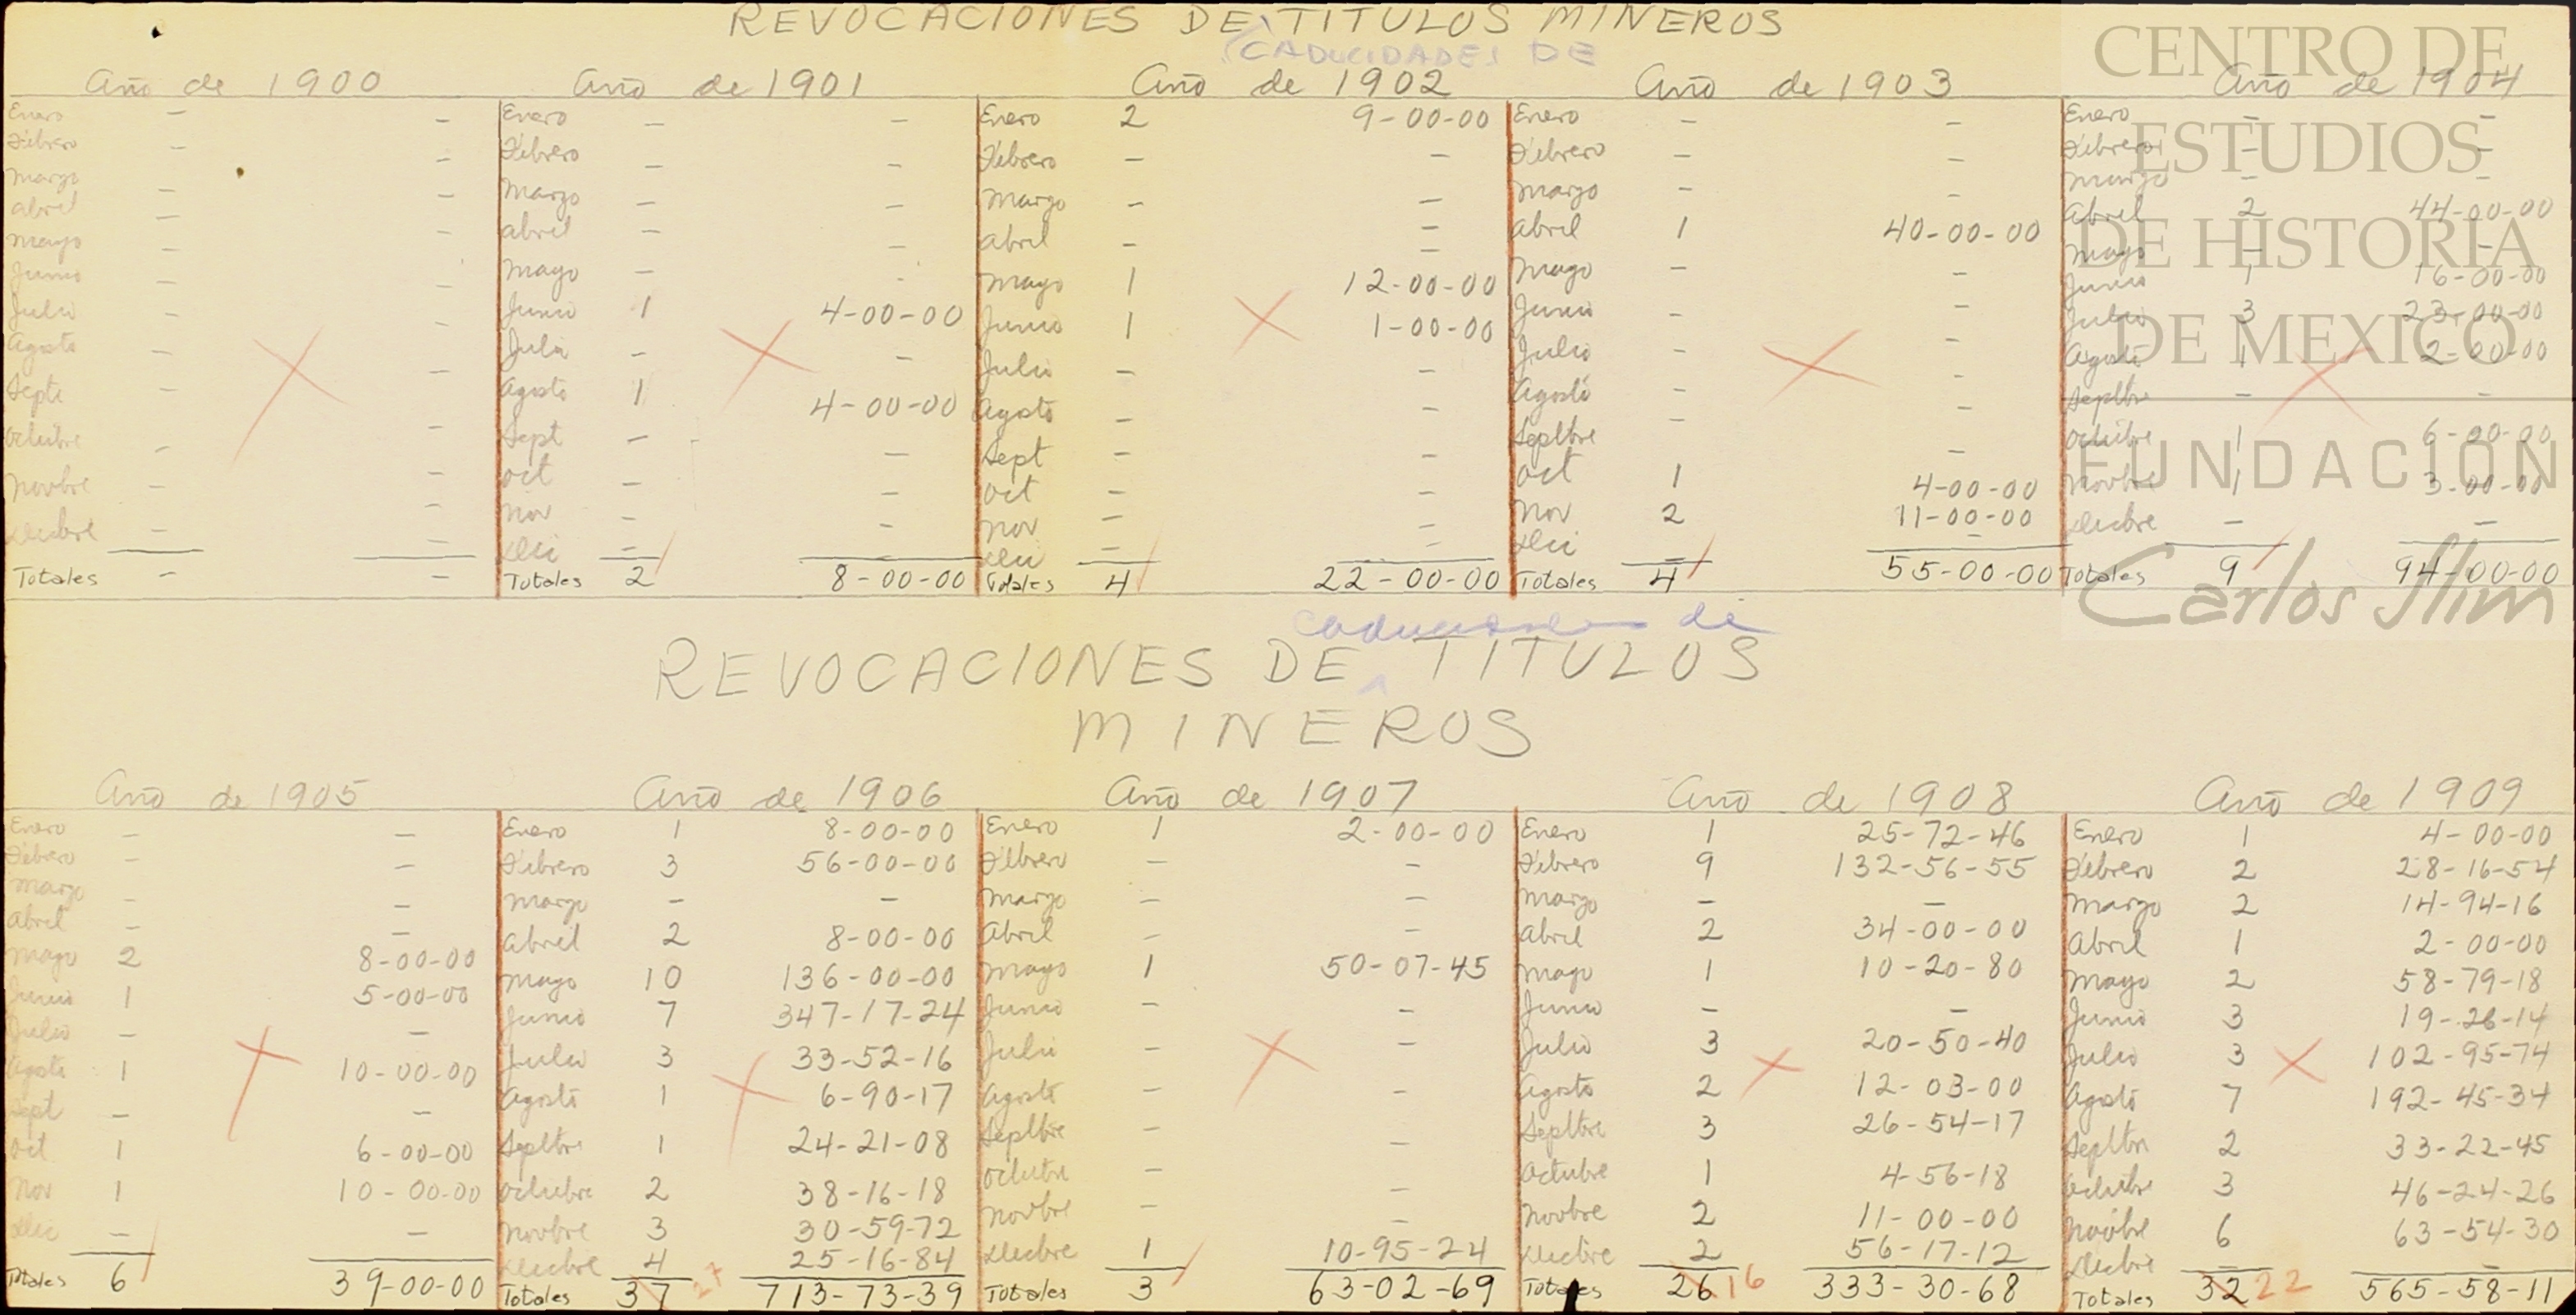 REVOCACIONES DE TITULOS MINEROS
CADUCIDADES DE
Año de 1900 Año de 1901 Año de 1902 Año de 1903 Año de 1904
Enero - - Enero - - Enero 2 9-00-00 Enero - - Enero - -
Febrero - - Febrero - - Febrero - - Febrero - - Febrero - -
Marzo - - Marzo - - Marzo - - Marzo - - Marzo - -
Abril - - Abril - - Abril - - Abril 1 40-00-00 Abril 2 44-00-00
Mayo - - Mayo - - Mayo 1 12-00-00 Mayo - - Mayo - -
Junio - - Junio 1 4-00-00 Junio 1 1-00-00 Junio - - Junio 1 16-00-00
Julio - - Julio - - Julio - - Julio - - Julio 3 23-00-00
Agosto - - Agosto 1 4-00-00 Agosto - - Agosto - - Agosto 1 2-00-00
Septe - - Sept - - Sept - - Septbre - - Septbre - -
Octubre - - Oct - - Oct - - Oct 1 4-00-00 Octubre 1 6-00-00
Novbre - - Nov - - Nov - - Nov 2 11-00-00 Novbre 1 3-00-00
Dicbre - - Dic - - Dic - - Dic - - Dicbre - -
Totales - - Totales 2 8-00-00 Totales 4 22-00-00 Totales 4 55-00-00 Totales 9 94-00-00
CENTRO DE
ESTUDIOS
DE HISTORIA
DE MEXICO
FUNDACIÓN
Carlos Slim
caducidades de
REVOCACIONES DE TITULOS
MINEROS
Año de 1905 Año de 1906 Año de 1907 Año de 1908 Año de 1909
Enero - - Enero 1 8-00-00 Enero 1 2-00-00 Enero 1 25-72-46 Enero 1 4-00-00
Febrero - - Febrero 3 56-00-00 Febrero - - Febrero 9 132-56-55 Febrero 2 28-16-54
Marzo - - Marzo - - Marzo - - Marzo - - Marzo 2 14-94-16
Abril - - Abril 2 8-00-00 Abril - - Abril 2 34-00-00 Abril 1 2-00-00
Mayo 2 8-00-00 Mayo 10 136-00-00 Mayo 1 50-07-45 Mayo 1 10-20-80 Mayo 2 58-79-18
Junio 1 5-00-00 Junio 7 347-17-24 Junio - - Junio - - Junio 3 19-26-14
Julio - - Julio 3 33-52-16 Julio - - Julio 3 20-50-40 Julio 3 102-95-74
Agosto 1 10-00-00 Agosto 1 6-90-17 Agosto - - Agosto 2 12-03-00 Agosto 7 192-45-34
Sept - - Septbre 1 24-21-08 Septbre - - Septbre 3 26-54-17 Septbre 2 33-22-45
Oct 1 6-00-00 Octubre 2 38-16-18 Octubre - - Octubre 1 4-56-18 Octubre 3 46-24-26
Nov 1 10-00-00 Novbre 3 30-59-72 Novbre - - Novbre 2 11-00-00 Novbre 6 63-54-30
Dic - - Dicbre 4 25-16-84 Dicbre 1 10-95-24 Dicbre 2 56-17-12 Dicbre - -
Totales 6 39-00-00 Totales 37 27 713-73-39 Totales 3 63-02-69 Totales 26 16 333-30-68 Totales 32 22 565-58-11